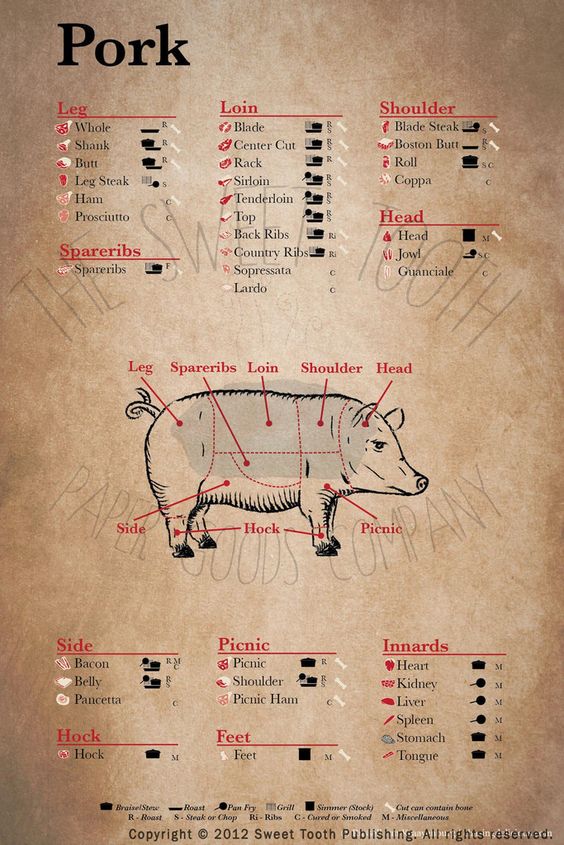 Pork
Leg
Whole R
Shank R
Butt R
Leg Steak S
Ham C
Prosciutto C
Spareribs
Spareribs F
Loin
Blade R S
Center Cut R S
Rack R S
Sirloin R S
Tenderloin R S
Top R S
Back Ribs Ri
Country Ribs Ri
Sopressata C
Lardo C
Shoulder
Blade Steak S
Boston Butt R
Roll S C
Coppa C
Head
Head M
Jowl S C
Guanciale C
THE SWEET TOOTH
Leg Spareribs Loin Shoulder Head
Side Hock Picnic
PAPER GOODS COMPANY
Side
Bacon R M C
Belly R S
Pancetta C
Hock
Hock M
Picnic
Picnic R
Shoulder R S
Picnic Ham C
Feet
Feet M
Innards
Heart M
Kidney M
Liver M
Spleen M
Stomach M
Tongue M
Braise/Stew Roast Pan Fry Grill Simmer (Stock) Cut can contain bone
R - Roast S - Steak or Chop Ri - Ribs C - Cured or Smoked M - Miscellaneous
Copyright © 2012 Sweet Tooth Publishing. All rights reserved.